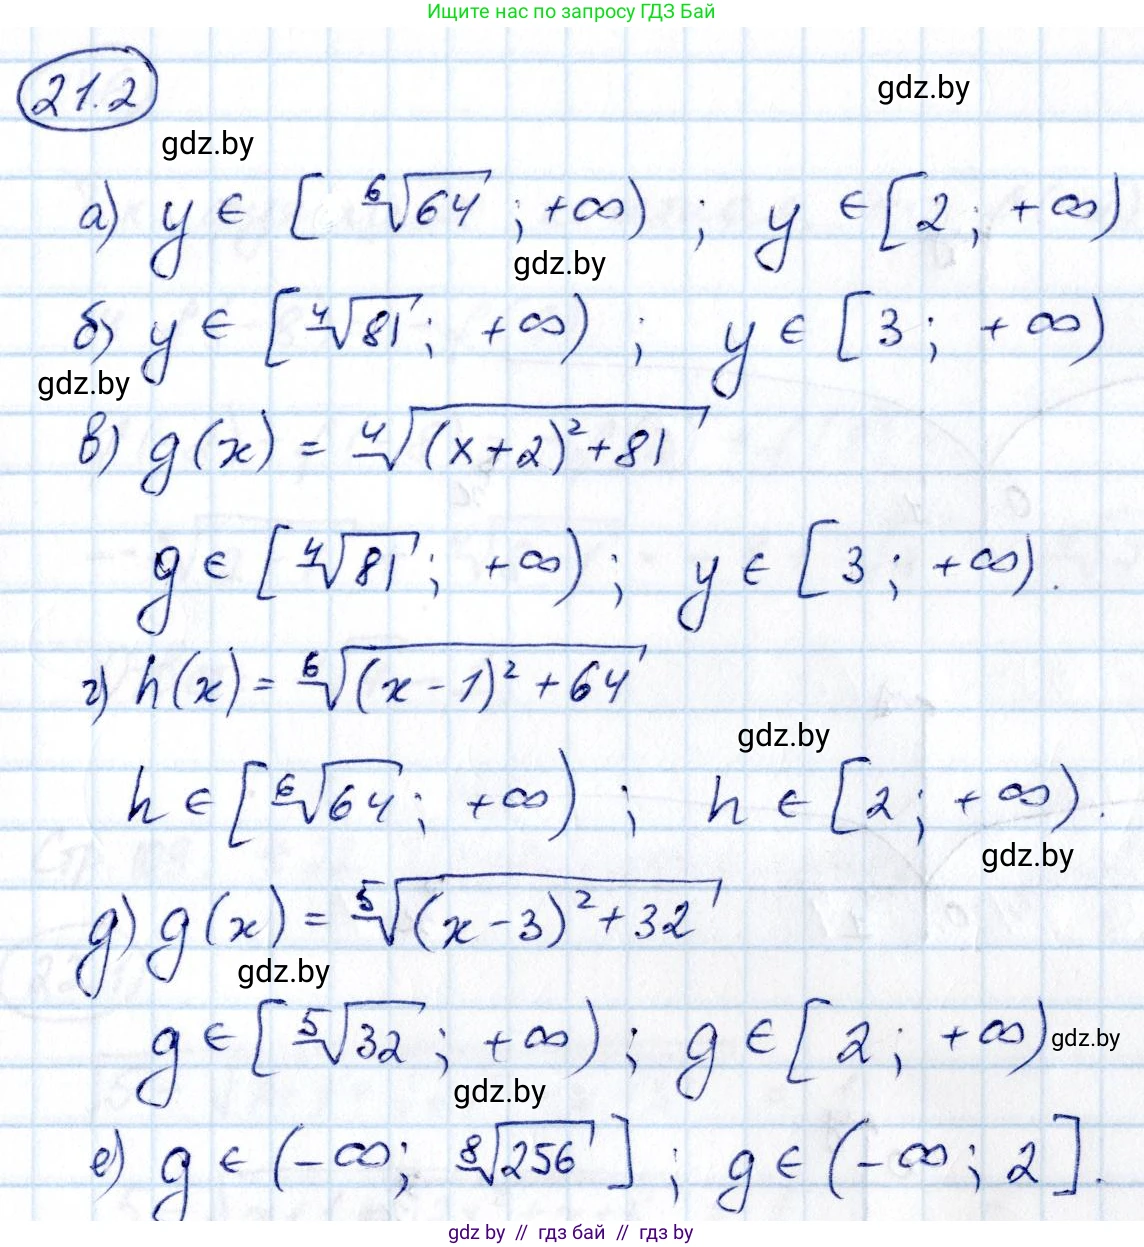 Ищите нас по запросу ГДЗ Бай
21.2
gdz.by
gdz.by
а) y ∈ [⁶√64 ; +∞) ; y ∈ [2 ; +∞)
gdz.by
б) y ∈ [⁴√81 ; +∞) ; y ∈ [3 ; +∞)
gdz.by
в) g(x) = ⁴√((x+2)²+81)
g ∈ [⁴√81 ; +∞) ; y ∈ [3 ; +∞).
г) h(x) = ⁶√((x-1)²+64)
gdz.by
h ∈ [⁶√64 ; +∞) ; h ∈ [2 ; +∞).
gdz.by
д) g(x) = ⁵√((x-3)²+32)
gdz.by
g ∈ [⁵√32 ; +∞) ; g ∈ [2 ; +∞)
gdz.by
gdz.by
е) g ∈ (-∞ ; ⁸√256] ; g ∈ (-∞ ; 2].
gdz by // гдз бай // гдз by